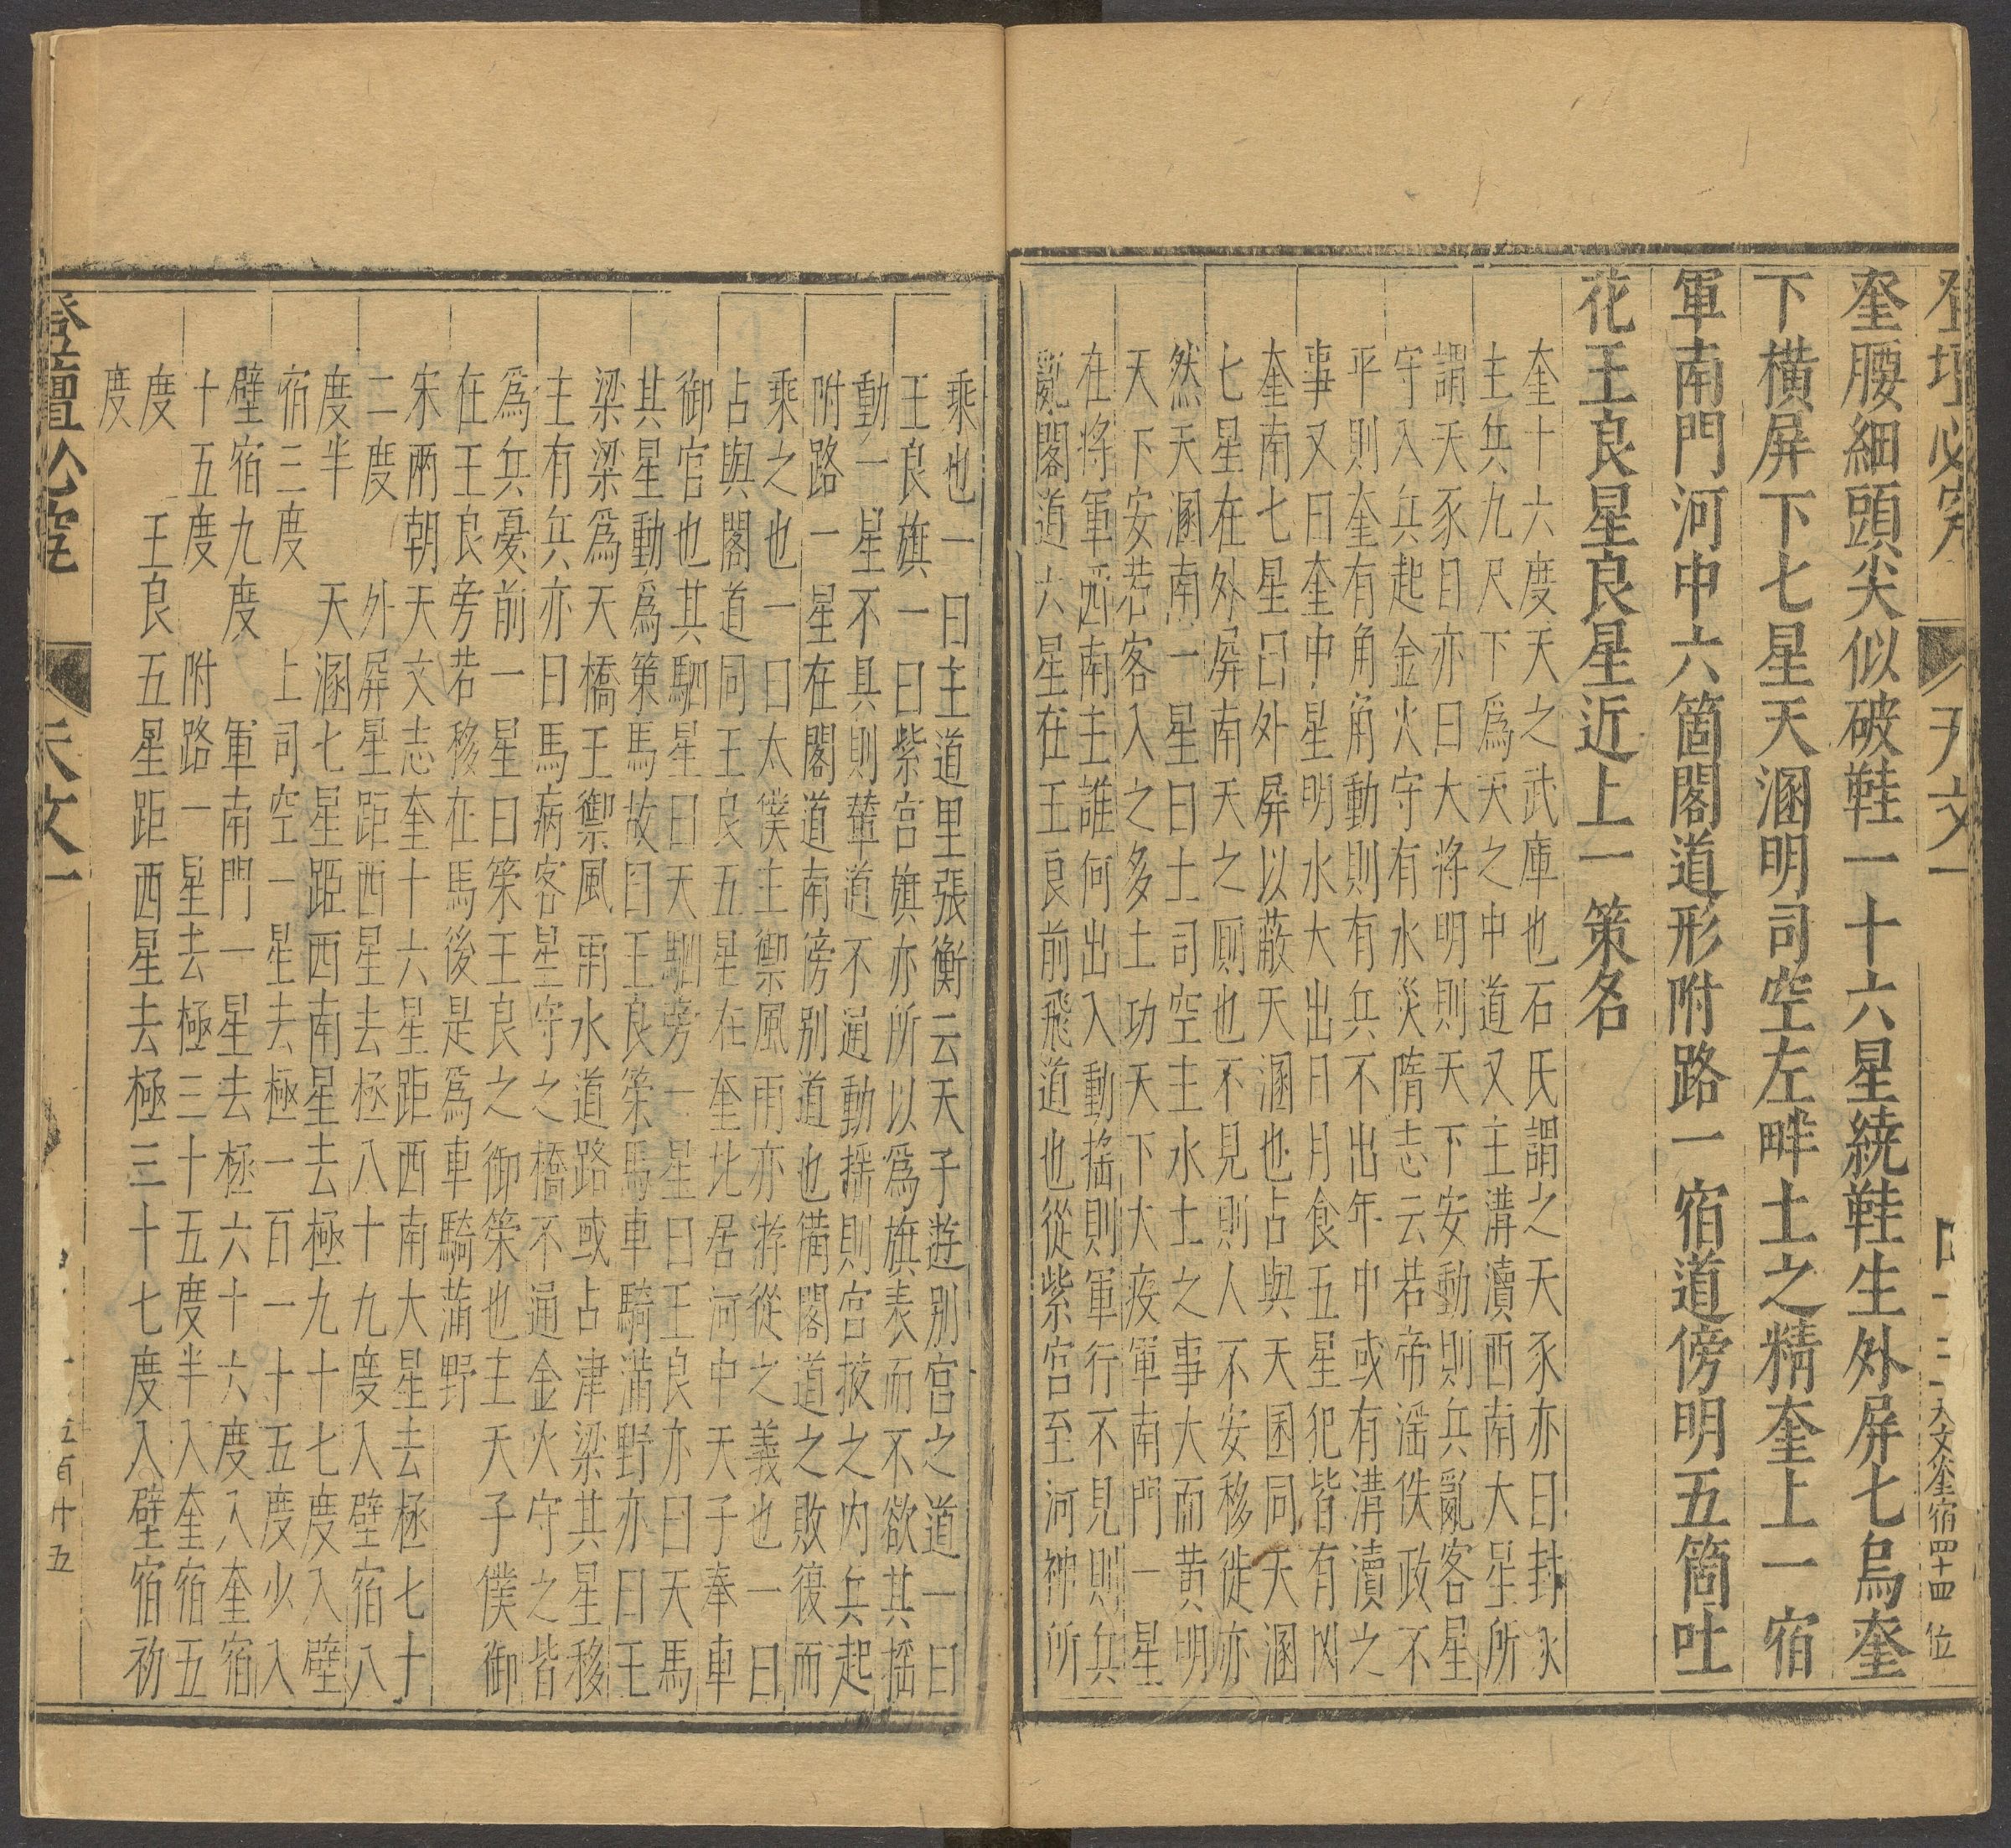 登壇必究 天文一 天文奎宿四十四 位
奎腰細頭尖似破鞋一十六星繞鞋生外屏七烏奎
下橫屏下七星天溷明司空左畔土之精奎上一宿
軍南門河中六箇閣道形附路一宿道傍明五箇吐
花王良星良星近上一策名
奎十六度天之武庫也石氏謂之天豕亦曰封豕
主兵九尺下爲天之中道又主溝瀆西南大星所
謂天豕目亦曰大將明則天下安動則兵亂客星
守入兵起金火守有水災隋志云若帝滛佚政不
平則奎有角角動則有兵不出年中或有溝瀆之
事又曰奎中星明水大出日月食五星犯皆有凶
奎南七星曰外屏以蔽天溷也占與天囷同天溷
七星在外屏南天之厠也不見則人不安移徙亦
然天溷南一星曰土司空主水土之事大而黄明
天下安若客入之多土功天下大疫軍南門一星
在將軍西南主誰何出入動揺則軍行不見則兵
亂閣道六星在王良前飛道也從紫宮至河神所
乘也一曰主道里張衡云天子遊别宮之道一曰
王良旗一曰紫宮旗亦所以爲旗表而不欲其揺
動一星不具則輦道不通動揺則宮掖之内兵起
附路一星在閣道南傍别道也備閣道之敗復而
乘之也一曰太僕主禦風雨亦游從之義也一曰
占與閣道同王良五星在奎北居河中天子奉車
御官也其駟星曰天駟旁一星曰王良亦曰天馬
其星動爲策馬故曰王良策馬車騎滿野亦曰王
梁梁爲天橋王禦風雨水道路或占津梁其星移
主有兵亦曰馬病客星守之橋不通金火守之皆
爲兵憂前一星曰策王良之御策也主天子僕御
在王良旁若移在馬後是爲車騎蒲野
宋兩朝天文志奎十六星距西南大星去極七十
二度 外屏星距西星去極八十九度入壁宿八
度半 天溷七星距西南星去極九十七度入壁
宿三度 上司空一星去極一百一十五度少入
壁宿九度 軍南門一星去極六十六度入奎宿
十五度 附路一星去極三十五度半入奎宿五
度 王良五星距西星去極三十七度入壁宿初
度
登壇必究 天文一 五百十五